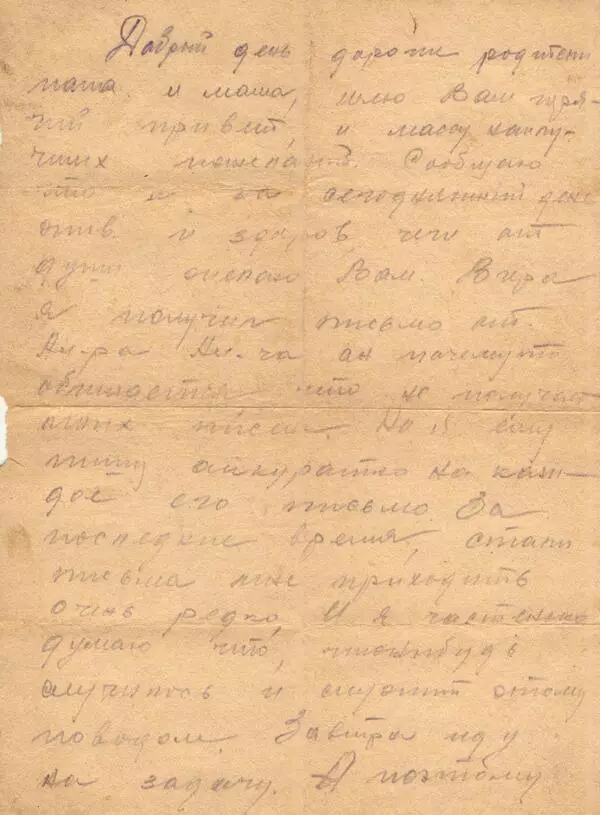 Добрый день дорогие родители
папа и мама, шлю Вам горя-
чий привет, и массу наилу-
чших пожеланий. Сообщаю
что я на сегодняшний день
жив и здоров чего от
души желаю Вам. Вчера
я получил письмо от
он почемуто
обижается что не получает
моих писем. Но я ему
пишу аккуратно на каж-
дое его письмо. За
последние время, стали
письма мне приходить
очень редко, И я частенько
думаю что,
случилось и
поводом. Завтра иду
на задачу. А поэтому